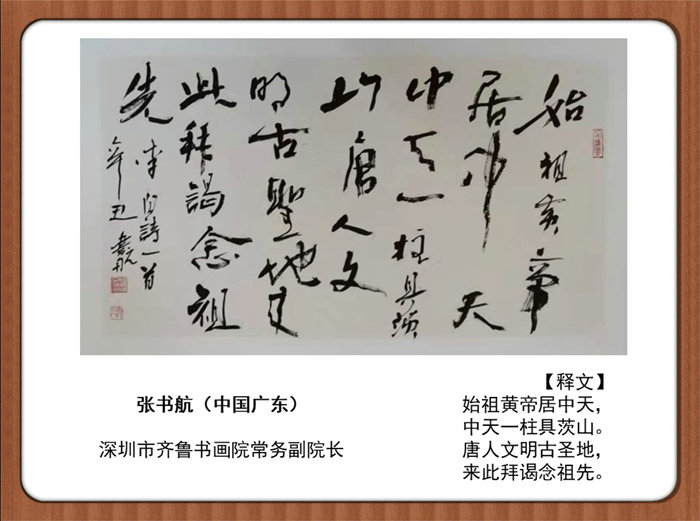 始祖黄帝
居中天
中天一柱具茨
山唐人文
明古聖地来
此拜謁念祖
先
李白詩一首
辛丑書航
张书航（中国广东）
深圳市齐鲁书画院常务副院长
【释文】
始祖黄帝居中天，
中天一柱具茨山。
唐人文明古圣地，
来此拜谒念祖先。